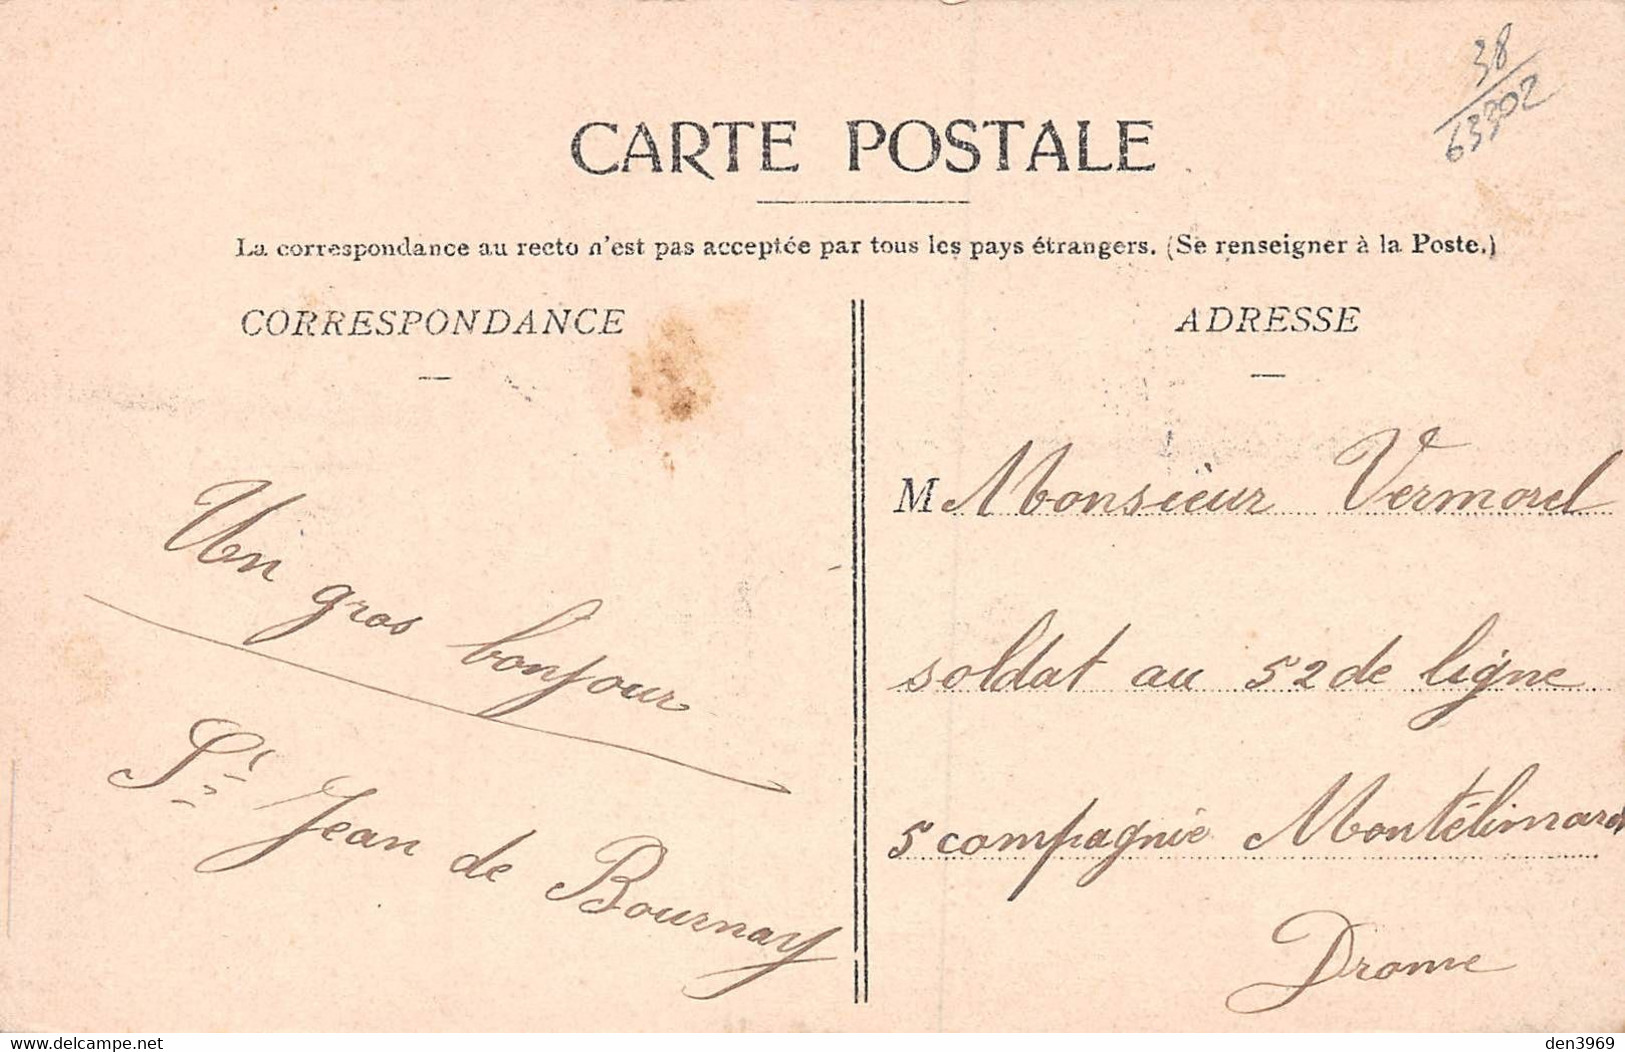 38
63302
CARTE POSTALE
La correspondance au recto n'est pas acceptée par tous les pays étrangers. (Se renseigner à la Poste.)
CORRESPONDANCE
Un gros bonjour
St Jean de Bournay
ADRESSE
M Monsieur Vermorel
soldat au 52 de ligne
5 compagnie Montélimard
Drome
www.delcampe.net
den3969